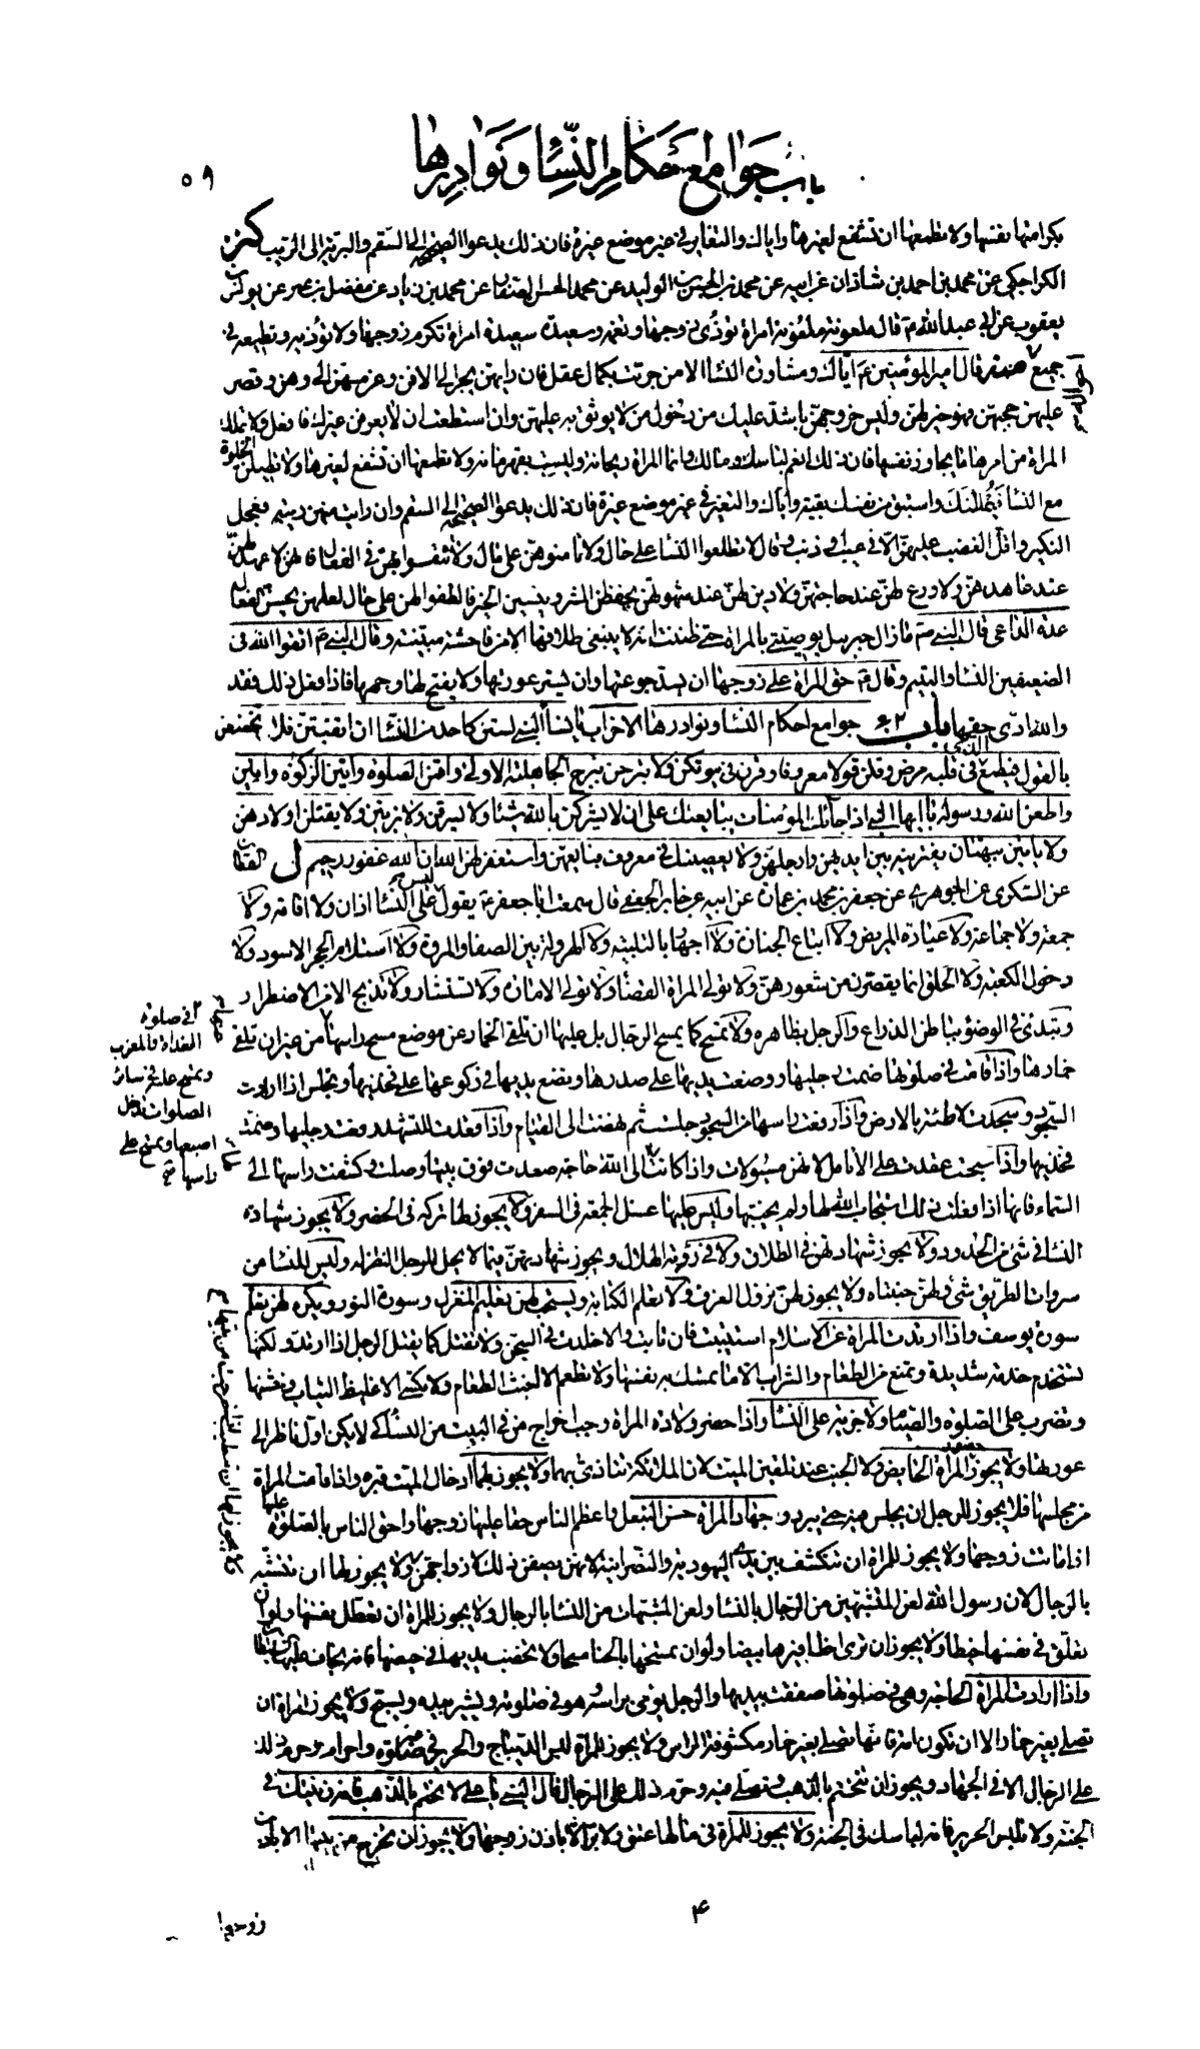 باب جوامع أحكام النساء ونوادرها
٥٩
بكرامتها نفسها ولا تطمعها ان تشفع لغيرها واياك والتغاير في غير موضع غيرة فان ذلك يدعوا الصحيحة الى السقم والبريئة الى الريب كنز
الكراجكي عن محمد بن احمد بن شاذان عن ابيه عن محمد بن الحسن بن الوليد عن محمد بن الحسن الصفار عن محمد بن زياد عن مفضل بن عمر عن يونس بن
يعقوب عن ابي عبد الله ع قال ملعونة ملعونة امراة تؤذي زوجها وتغمه وسعيدة سعيدة امراة تكرم زوجها ولا تؤذيه وتطيعه في
جميع احواله قال امير المؤمنين ع اياك ومشاورة النساء الا من جربت بكمال عقل فان رايهن يجر الى الافن وعزمهن الى وهن وقصر
عليهن حجبهن فهو خير لهن وليس خروجهن باشد عليك من دخول من لا يوثق به عليهن وان استطعت ان لا يعرفن غيرك فافعل ولا تملك
المراة من امرها ما يجاوز نفسها فان ذلك انعم لبالك وانما المراة ريحانة وليست بقهرمانة ولا تطمعها ان تشفع لغيرها ولا تطيلن الخلوة
مع النساء فيمللنك واستبق من نفسك بقية واياك والتغير في غير موضع غيرة فان ذلك يدعو الصحيحة الى السقم وان رايت منهن ريبة فعجل
النكير واقل الغضب عليهن الا في عيب او ذنب وقال لا تطلعوا النساء على حال ولا تامنوهن على مال ولا تثقوا بهن في الفعال فانهن لا عهد لهن
عند عاهدهن ولا ورع لهن عند حاجتهن ولا دين لهن عند شهوتهن يحفظن الشر وينسين الخير فالطفوا لهن على حال لعلهن يحسن الفعال
عدة الداعي قال النبي ص ما زال جبرئيل يوصيني بالمراة حتى ظننت انه لا ينبغي طلاقها الا من فاحشة مبينة وقال النبي ص اتقوا الله في
الضعيفين النساء واليتيم وقال ص حق المراة على زوجها ان يسد جوعتها وان يستر عورتها ولا يقبح لها وجها فاذا فعل ذلك فقد
والله ادى حقها باب جوامع احكام النساء ونوادرها الاحزاب يا نساء النبي لستن كاحد من النساء ان اتقيتن فلا تخضعن
بالقول فيطمع الذي في قلبه مرض وقلن قولا معروفا وقرن في بيوتكن ولا تبرجن تبرج الجاهلية الاولى واقمن الصلوة واتين الزكوة
واطعن الله ورسوله يا ايها النبي اذا جائك المؤمنات يبايعنك على ان لا يشركن بالله شيئا ولا يسرقن ولا يزنين ولا يقتلن اولادهن
ولا ياتين ببهتان يفترينه بين ايديهن وارجلهن ولا يعصينك في معروف فبايعهن واستغفر لهن الله ان الله غفور رحيم ل القطان
عن السكري عن الجوهري عن جعفر بن محمد بن عمارة عن ابيه عن جابر الجعفي قال سمعت ابا جعفر ع يقول ليس على النساء اذان ولا اقامة ولا
جمعة ولا جماعة ولا عيادة المريض ولا اتباع الجنازة ولا اجهار بالتلبية ولا الهرولة بين الصفا والمروة ولا استلام الحجر الاسود ولا
دخول الكعبة ولا الحلق انما يقصرن من شعورهن ولا تولى المراة القضاء ولا تولى الامارة ولا تستشار ولا تذبح الا من الاضطرار
وتبدئ في الوضوء بباطن الذراع والرجل بظاهره ولا تمسح كما يمسح الرجال بل عليها ان تلقي الخمار عن موضع مسح راسها من غير ان تلقي
خمارها واذا قامت في صلوتها ضمت رجليها ووضعت يديها على صدرها وتضع يديها في ركوعها على فخذيها وتجلس اذا ارادت
السجود وسجدت لاطئة بالارض واذا رفعت راسها من السجود جلست ثم نهضت الى القيام واذا قعدت للتشهد رفعت رجليها وضمت
فخذيها واذا سبحت عقدت على الانامل لانهن مسئولات واذا كانت لها الى الله حاجة صعدت فوق بيتها وصلت وكشفت راسها الى
السماء فانها اذا فعلت ذلك استجاب الله لها ولم يخيبها وليس عليها غسل الجمعة في السفر ولا يجوز لها تركه في الحضر ولا يجوز شهادة
النساء في شيء من الحدود ولا يجوز شهادتهن في الطلاق ولا في رؤية الهلال ويجوز شهادتهن فيما لا يحل للرجل النظر اليه وليس للنساء من
سروات الطريق شيء ولهن جنبتاه ولا يجوز لهن نزول الغرف ولا تعلم الكتابة ويستحب لهن تعليم المغزل وسورة النور ويكره لهن تعلم
سورة يوسف واذا ارتدت المراة عن الاسلام استتيبت فان تابت والا خلدت في السجن ولا تقتل كما يقتل الرجل اذا ارتد ولكنها
تستخدم خدمة شديدة وتمنع من الطعام والشراب الا ما تمسك به نفسها ولا تطعم الا جشب الطعام ولا تكسى الا غليظ الثياب وخشنها
وتضرب على الصلوة والصيام ولا جزية على النساء واذا حضر ولادة المراة وجب اخراج من في البيت من النساء كي لا يكن اول ناظر الى
عورتها ولا يجوز حضور المراة الحائض ولا الجنب عند تلقين الميت لان الملائكة تتاذى بهما ولا يجوز لهما ادخال الميت قبره واذا قامت المراة
من مجلسها فلا يجوز للرجل ان يجلس فيه حتى يبرد وجهاد المراة حسن التبعل واعظم الناس حقا عليها زوجها واحق الناس بالصلوة عليها
اذا ماتت زوجها ولا يجوز للمراة ان تنكشف بين يدي اليهودية والنصرانية لانهن يصفن ذلك لازواجهن ولا يجوز لها ان تتشبه
بالرجال لان رسول الله لعن المتشبهين من الرجال بالنساء ولعن المتشبهات من النساء بالرجال ولا يجوز للمراة ان تعطل نفسها ولو ان
تعلق في نفسها خيطا ولا يجوز ان ترى اظافيرها بيضا ولو ان تمسحها بالحنا مسحا ولا تخضب يديها في حيضها فانه يخاف عليها الشيطان
واذا ارادت المراة الحاجة وهي في صلوتها صفقت بيديها والرجل يومي براسه وهو في صلوته ويشير بيده ويسبح ولا يجوز للمراة ان
تصلي بغير خمار الا ان تكون امة فانها تصلي بغير خمار مكشوفة الراس ولا يجوز للمراة لبس الديباج والحرير في غير صلوة واحرام وحرم ذلك
على الرجال الا في الجهاد ويجوز ان تتختم بالذهب وتصلي فيه وحرم ذلك على الرجال قال النبي يا علي لا تختم بالذهب فانه زينتك في
الجنة ولا تلبس الحرير فانه لباسك في الجنة ولا يجوز للمراة في مالها عتق ولا بر الا باذن زوجها ولا يجوز ان تخرج من بيتها الا باذن
في صلوة
الغداة والمغرب
وتمسح عليه في سائر
الصلوات تدخل
اصبعها وتمسح على
راسها
٤
زوجها